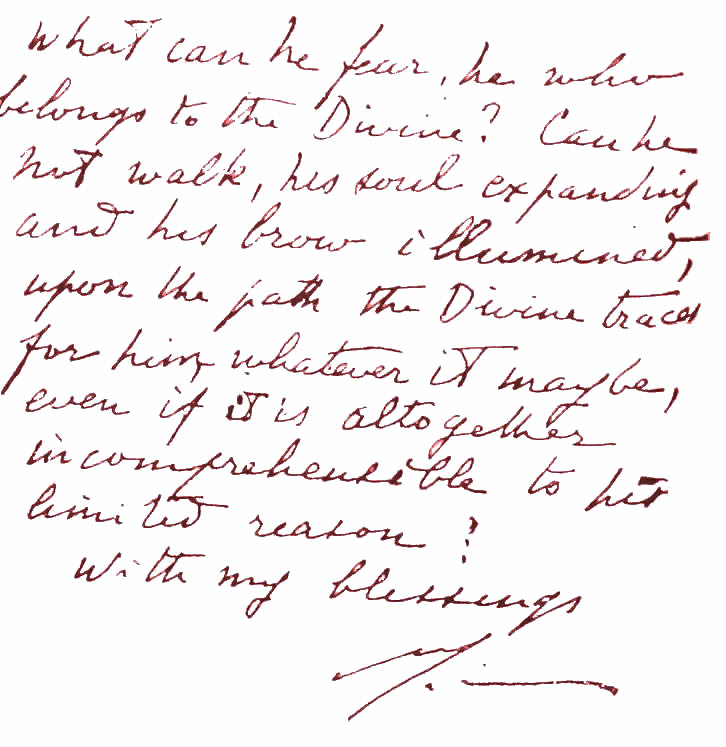 What can he fear, he who
belongs to the Divine? Can he
not walk, his soul expanding
and his brow illumined,
upon the path the Divine traces
for him, whatever it may be,
even if it is altogether
incomprehensible to his
limited reason?
With my blessings